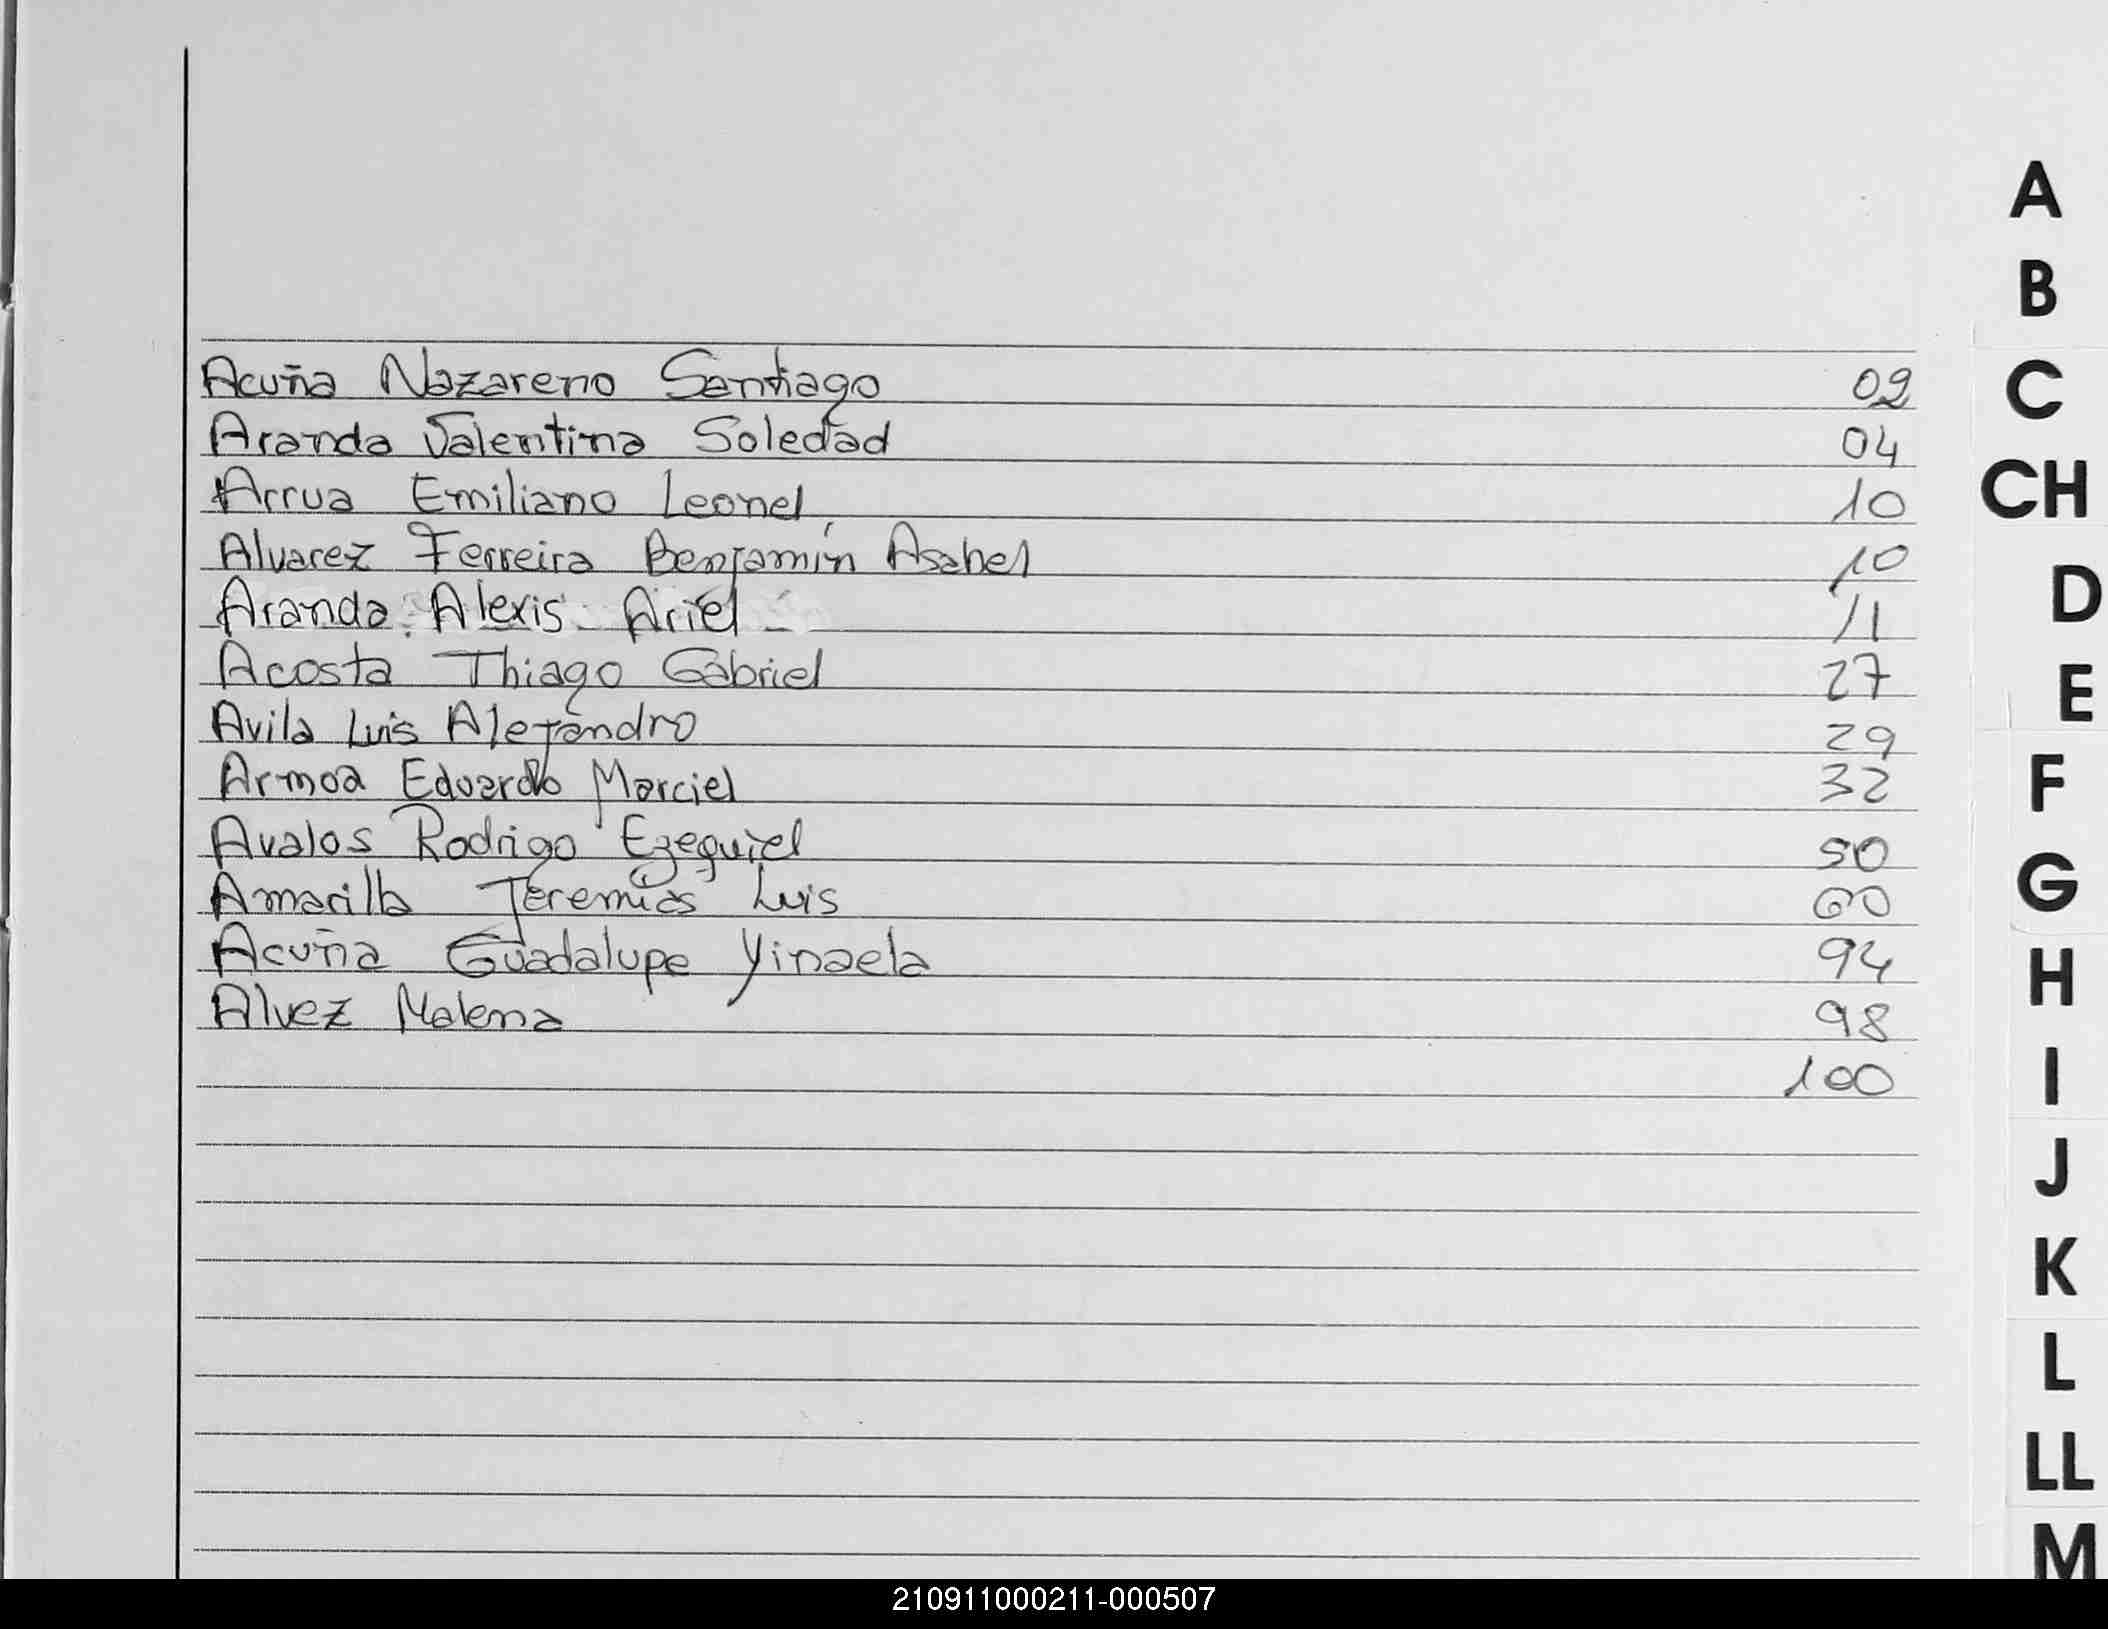 Acuña Nazareno Santiago 02
Aranda Valentina Soledad 04
Arrua Emiliano Leonel 10
Alvarez Ferreira Benjamín Asahel 10
Aranda Alexis Ariel 11
Acosta Thiago Gabriel 27
Avila Luis Alejandro 29
Armoa Eduardo Marciel 32
Avalos Rodrigo Ezequiel 50
Amarilla Jeremias Luis 60
Acuña Guadalupe Yinaela 94
Alvez Malena 98
100
A
B
C
CH
D
E
F
G
H
I
J
K
L
LL
M
210911000211-000507